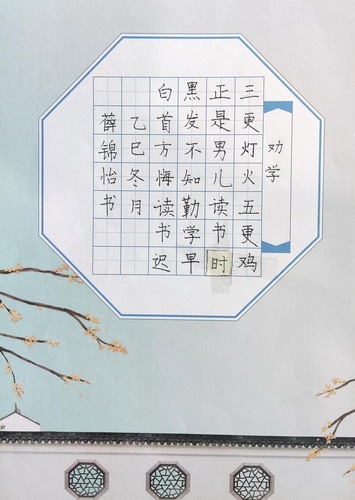 劝学
三更灯火五更鸡
正是男儿读书时
黑发不知勤学早
白首方悔读书迟
乙巳冬月
薛锦怡书